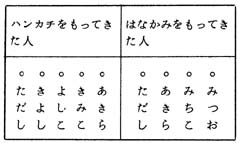 ハンカチをもってき
た人
。あきら
。きみこ
。よしこ
。きよし
。ただし
はなかみをもってき
た人
。みつお
。みちこ
。あきら
。ただし